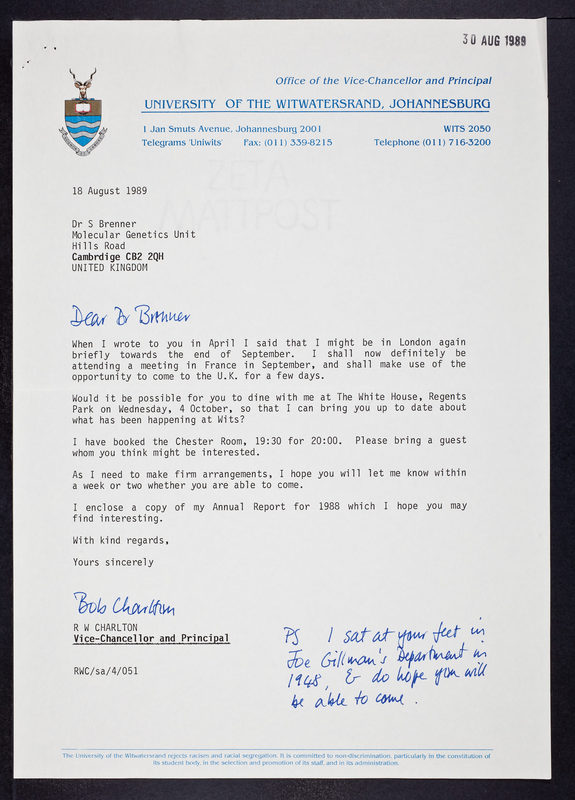 30 AUG 1989
Office of the Vice-Chancellor and Principal
UNIVERSITY OF THE WITWATERSRAND, JOHANNESBURG
1 Jan Smuts Avenue, Johannesburg 2001 WITS 2050
Telegrams 'Uniwits' Fax: (011) 339-8215 Telephone (011) 716-3200
ZETA
MATTPOST
18 August 1989
Dr S Brenner
Molecular Genetics Unit
Hills Road
Cambrdige CB2 2QH
UNITED KINGDOM
Dear Dr Brenner
When I wrote to you in April I said that I might be in London again
briefly towards the end of September. I shall now definitely be
attending a meeting in France in September, and shall make use of the
opportunity to come to the U.K. for a few days.
Would it be possible for you to dine with me at The White House, Regents
Park on Wednesday, 4 October, so that I can bring you up to date about
what has been happening at Wits?
I have booked the Chester Room, 19:30 for 20:00. Please bring a guest
whom you think might be interested.
As I need to make firm arrangements, I hope you will let me know within
a week or two whether you are able to come.
I enclose a copy of my Annual Report for 1988 which I hope you may
find interesting.
With kind regards,
Yours sincerely
Bob Charlton
R W CHARLTON
Vice-Chancellor and Principal
RWC/sa/4/051
PS I sat at your feet in
Joe Gillman's Department in
1948, & do hope you will
be able to come.
The University of the Witwatersrand rejects racism and racial segregation. It is committed to non-discrimination, particularly in the constitution of
its student body, in the selection and promotion of its staff, and in its administration.